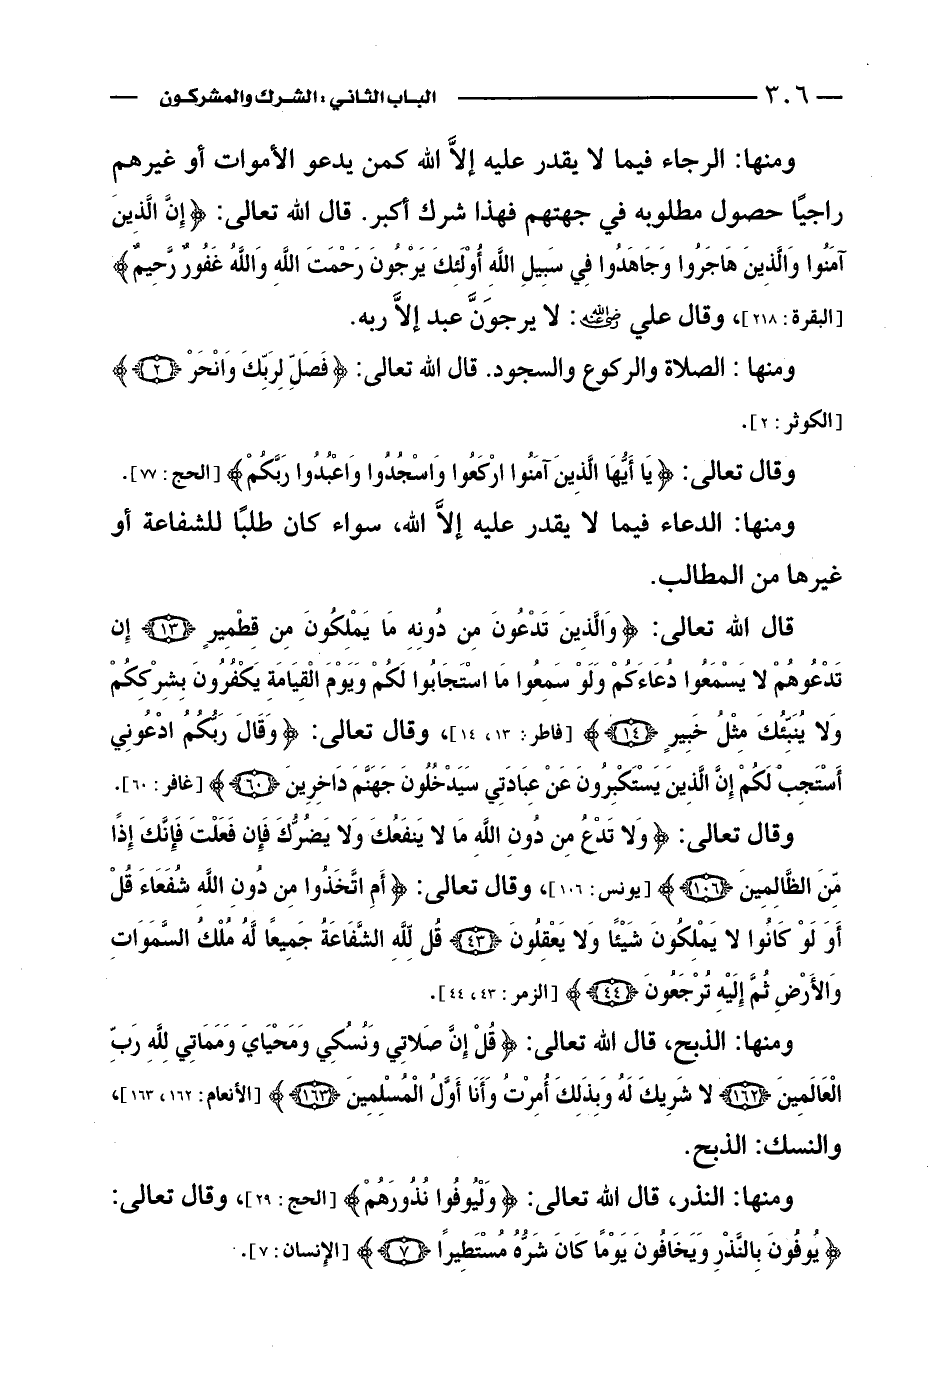 ٣٠٦ الباب الثاني: الشرك والمشركون
ومنها: الرجاء فيما لا يقدر عليه إلاَّ الله كمن يدعو الأموات أو غيرهم
راجيًا حصول مطلوبه في جهتهم فهذا شرك أكبر. قال الله تعالى: ﴿إِنَّ الَّذِينَ
آمَنُوا وَالَّذِينَ هَاجَرُوا وَجَاهَدُوا فِي سَبِيلِ اللَّهِ أُوْلَئِكَ يَرْجُونَ رَحْمَتَ اللَّهِ وَاللَّهُ غَفُورٌ رَّحِيمٌ﴾
[البقرة: ٢١٨]، وقال علي رضي الله عنه: لا يرجونَّ عبد إلاَّ ربه.
ومنها : الصلاة والركوع والسجود. قال الله تعالى: ﴿فَصَلِّ لِرَبِّكَ وَانْحَرْ ﴿٢﴾﴾
[الكوثر: ٢].
وقال تعالى: ﴿يَا أَيُّهَا الَّذِينَ آمَنُوا ارْكَعُوا وَاسْجُدُوا وَاعْبُدُوا رَبَّكُمْ﴾ [الحج: ٧٧].
ومنها: الدعاء فيما لا يقدر عليه إلاَّ الله، سواء كان طلبًا للشفاعة أو
غيرها من المطالب.
قال الله تعالى: ﴿وَالَّذِينَ تَدْعُونَ مِن دُونِهِ مَا يَمْلِكُونَ مِن قِطْمِيرٍ ﴿١٣﴾ إِن
تَدْعُوهُمْ لا يَسْمَعُوا دُعَاءَكُمْ وَلَوْ سَمِعُوا مَا اسْتَجَابُوا لَكُمْ وَيَوْمَ الْقِيَامَةِ يَكْفُرُونَ بِشِرْكِكُمْ
وَلا يُنَبِّئُكَ مِثْلُ خَبِيرٍ ﴿١٤﴾﴾ [فاطر: ١٣، ١٤]، وقال تعالى: ﴿وَقَالَ رَبُّكُمُ ادْعُونِي
أَسْتَجِبْ لَكُمْ إِنَّ الَّذِينَ يَسْتَكْبِرُونَ عَنْ عِبَادَتِي سَيَدْخُلُونَ جَهَنَّمَ دَاخِرِينَ ﴿٦٠﴾﴾ [غافر: ٦٠].
وقال تعالى: ﴿وَلا تَدْعُ مِن دُونِ اللَّهِ مَا لا يَنفَعُكَ وَلا يَضُرُّكَ فَإِن فَعَلْتَ فَإِنَّكَ إِذًا
مِّنَ الظَّالِمِينَ ﴿١٠٦﴾﴾ [يونس: ١٠٦]، وقال تعالى: ﴿أَمِ اتَّخَذُوا مِن دُونِ اللَّهِ شُفَعَاءَ قُلْ
أَوَ لَوْ كَانُوا لا يَمْلِكُونَ شَيْئًا وَلا يَعْقِلُونَ ﴿٤٣﴾ قُل لِّلَّهِ الشَّفَاعَةُ جَمِيعاً لَّهُ مُلْكُ السَّمَوَاتِ
وَالأَرْضِ ثُمَّ إِلَيْهِ تُرْجَعُونَ ﴿٤٤﴾﴾ [الزمر: ٤٣، ٤٤].
ومنها: الذبح، قال الله تعالى: ﴿قُلْ إِنَّ صَلاتِي وَنُسُكِي وَمَحْيَايَ وَمَمَاتِي لِلَّهِ رَبِّ
الْعَالَمِينَ ﴿١٦٢﴾ لا شَرِيكَ لَهُ وَبِذَلِكَ أُمِرْتُ وَأَنَا أَوَّلُ الْمُسْلِمِينَ ﴿١٦٣﴾﴾ [الأنعام: ١٦٢، ١٦٣]،
والنسك: الذبح.
ومنها: النذر، قال الله تعالى: ﴿وَلْيُوفُوا نُذُورَهُمْ﴾ [الحج: ٢٩]، وقال تعالى:
﴿يُوفُونَ بِالنَّذْرِ وَيَخَافُونَ يَوْمًا كَانَ شَرُّهُ مُسْتَطِيرًا ﴿٧﴾﴾ [الإنسان: ٧].